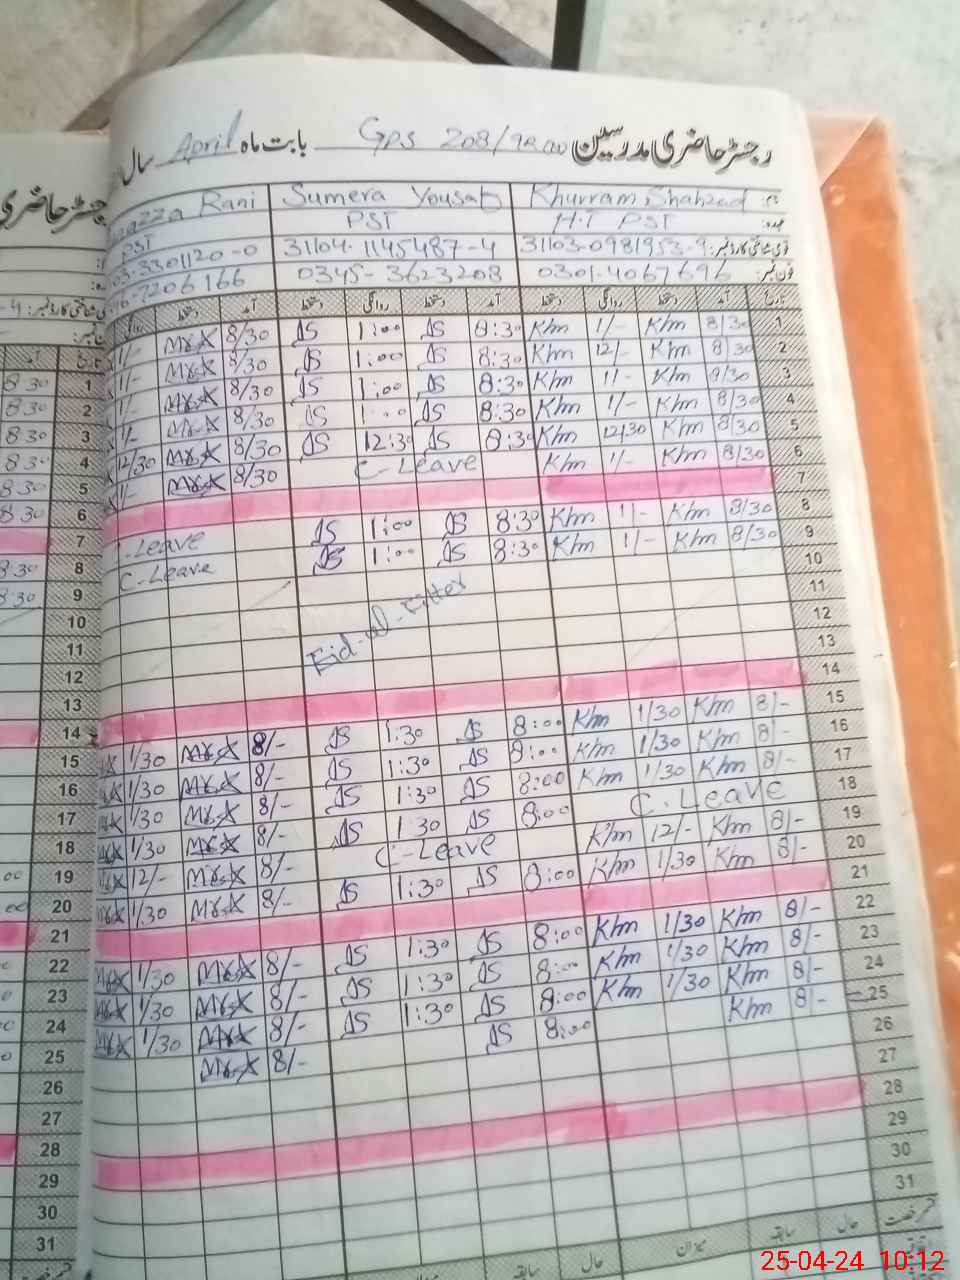 رجسٹر حاضری مدرسین GPS 208/ بابت ماہ April سال
نام: Khurram Shahzad Sumera Yousaf Rani
عہدہ: H.T PST PST PST
قومی شناختی کارڈ نمبر: 31103-0981953-9 31104-1145487-4 3301120-0
فون نمبر: 0301-4067696 0345-3623208 7206166
تاریخ آمد دستخط روانگی دستخط آمد دستخط روانگی دستخط آمد دستخط روانگی
1 8/30 Khm 1/- Khm 8:30 AS 1:00 AS 8/30 1/-
2 8/30 Khm 12/- Khm 8:30 AS 1:00 AS 8/30 1/-
3 8/30 Khm 1/- Khm 8:30 AS 1:00 AS 8/30 1/-
4 8/30 Khm 1/- Khm 8:30 AS 1:00 AS 8/30 1/-
5 8/30 Khm 12/30 Khm 8:30 AS 12:30 AS 8/30 12/30
6 8/30 Khm 1/- Khm C-Leave 8/30 1/-
7
8 8/30 Khm 1/- Khm 8:30 AS 1:00 AS C-Leave
9 8/30 Khm 1/- Khm 8:30 AS 1:00 AS C-Leave
10
11
Eid-ul-Fitter
12
13
14
15 8/- Khm 1/30 Khm 8:00 AS 1:30 AS 8/- 1/30
16 8/- Khm 1/30 Khm 8:00 AS 1:30 AS 8/- 1/30
17 8/- Khm 1/30 Khm 8:00 AS 1:30 AS 8/- 1/30
18 C.Leave 8:00 AS 1:30 AS 8/- 1/30
19 8/- Khm 12/- Khm C-Leave 8/- 12/-
20 8/- Khm 1/30 Khm 8:00 AS 1:30 AS 8/- 1/30
21
22 8/- Khm 1/30 Khm 8:00 AS 1:30 AS 8/- 1/30
23 8/- Khm 1/30 Khm 8:00 AS 1:30 AS 8/- 1/30
24 8/- Khm 1/30 Khm 8:00 AS 1:30 AS 8/- 1/30
25 8/- Khm 8:00 AS 8/-
26
27
28
29
30
31
قسم رخصت حال سابقہ میزان حال سابقہ میزان
رجسٹر حاضری
تاریخ آمد
1 8 30
2 8 30
3 8 30
4 8 30
5 8 30
6 8 30
7
8 8 30
9 8 30
10
11
12
13
14
15
16
17
18
19
20
21
22
23
24
25
26
27
28
29
30
31
25-04-24 10:12